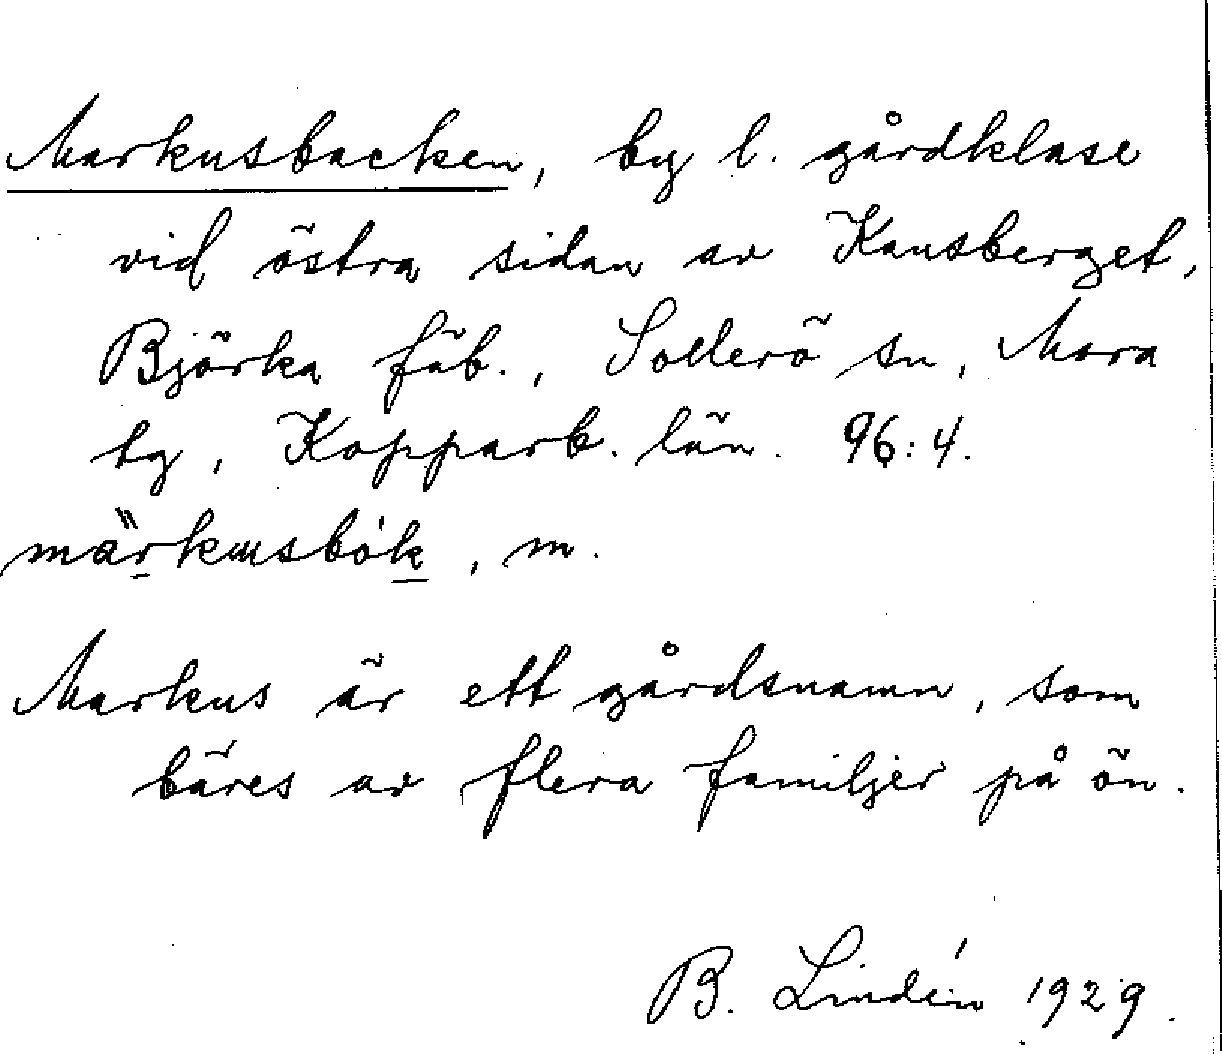 Markusbacken, by l. gårdklase
vid östra sidan av Kansberget,
Björka fäb., Sollerö sn, Mora
tg, Kopparb. län. 96:4.
märkusbòk, m.
Markus är ett gårdsnamn, som
bäres av flera familjer på ön.
B. Lindén 1929.